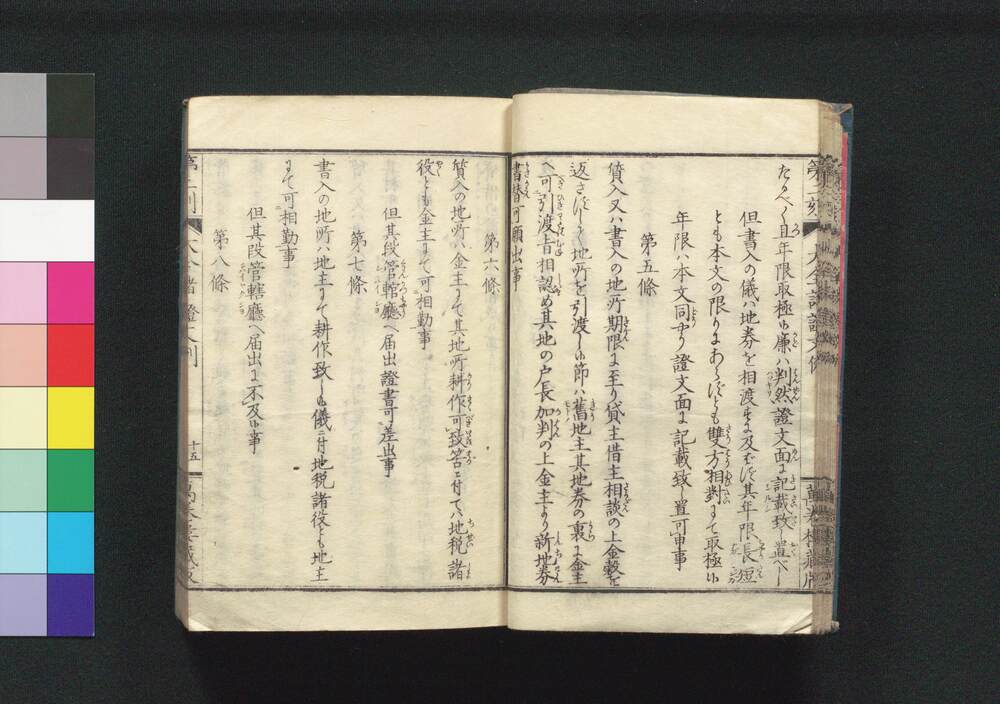 たるべく且年限取極候廉ハ判然證文面に記載致し置べし
但書入の儀ハ地券を相渡すに及ばず其年限長短
とも本文の限りにあらずとも雙方相對にて取極候
年限ハ本文同やう證文面に記載致し置可申事
第五條
質入又ハ書入の地所期限に至り貸主借主相談の上金穀を
返さずして地所を引渡し候節ハ舊地主其地券の裏に金主
へ可引渡旨相認め其地の戸長加判の上金主より新地券
書替可願出事
第六條
質入の地所ハ金主にて其地所耕作可致筈に付てハ地税諸
役とも金主にて可相勤事
但其段管轄廳へ届出證書可差出事
第七條
書入の地所ハ地主にて耕作致し候儀ニ付地税諸役とも地主
にて可相勤事
但其段管轄廳へ届出に不及候事
第八條
十五